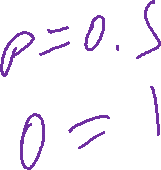 p=0.5
0=1